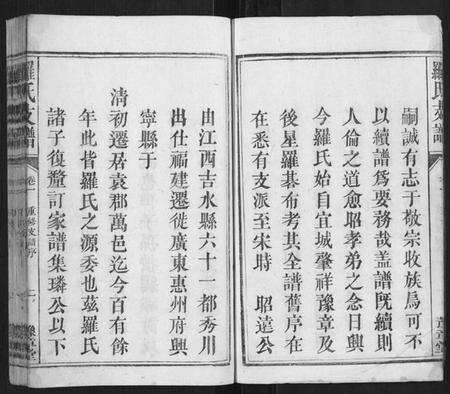 嗣誠有志于敬宗收族烏可不
以續譜爲要務哉蓋譜既續則
人倫之道愈昭孝弟之念日興
今羅氏始自宜城肇祥豫章及
後星羅綦布考其全譜舊序在
在悉有支派至宋時 昭達公
由江西吉水縣六十一都秀川
出仕福建遷徙廣東惠州府興
寧縣于
清初遷居袁郡萬邑迄今百有餘
年此皆羅氏之源委也茲羅氏
諸子復釐訂家譜集璘公以下
羅氏支譜
卷
重修支譜序
二
豫章堂
羅氏支譜